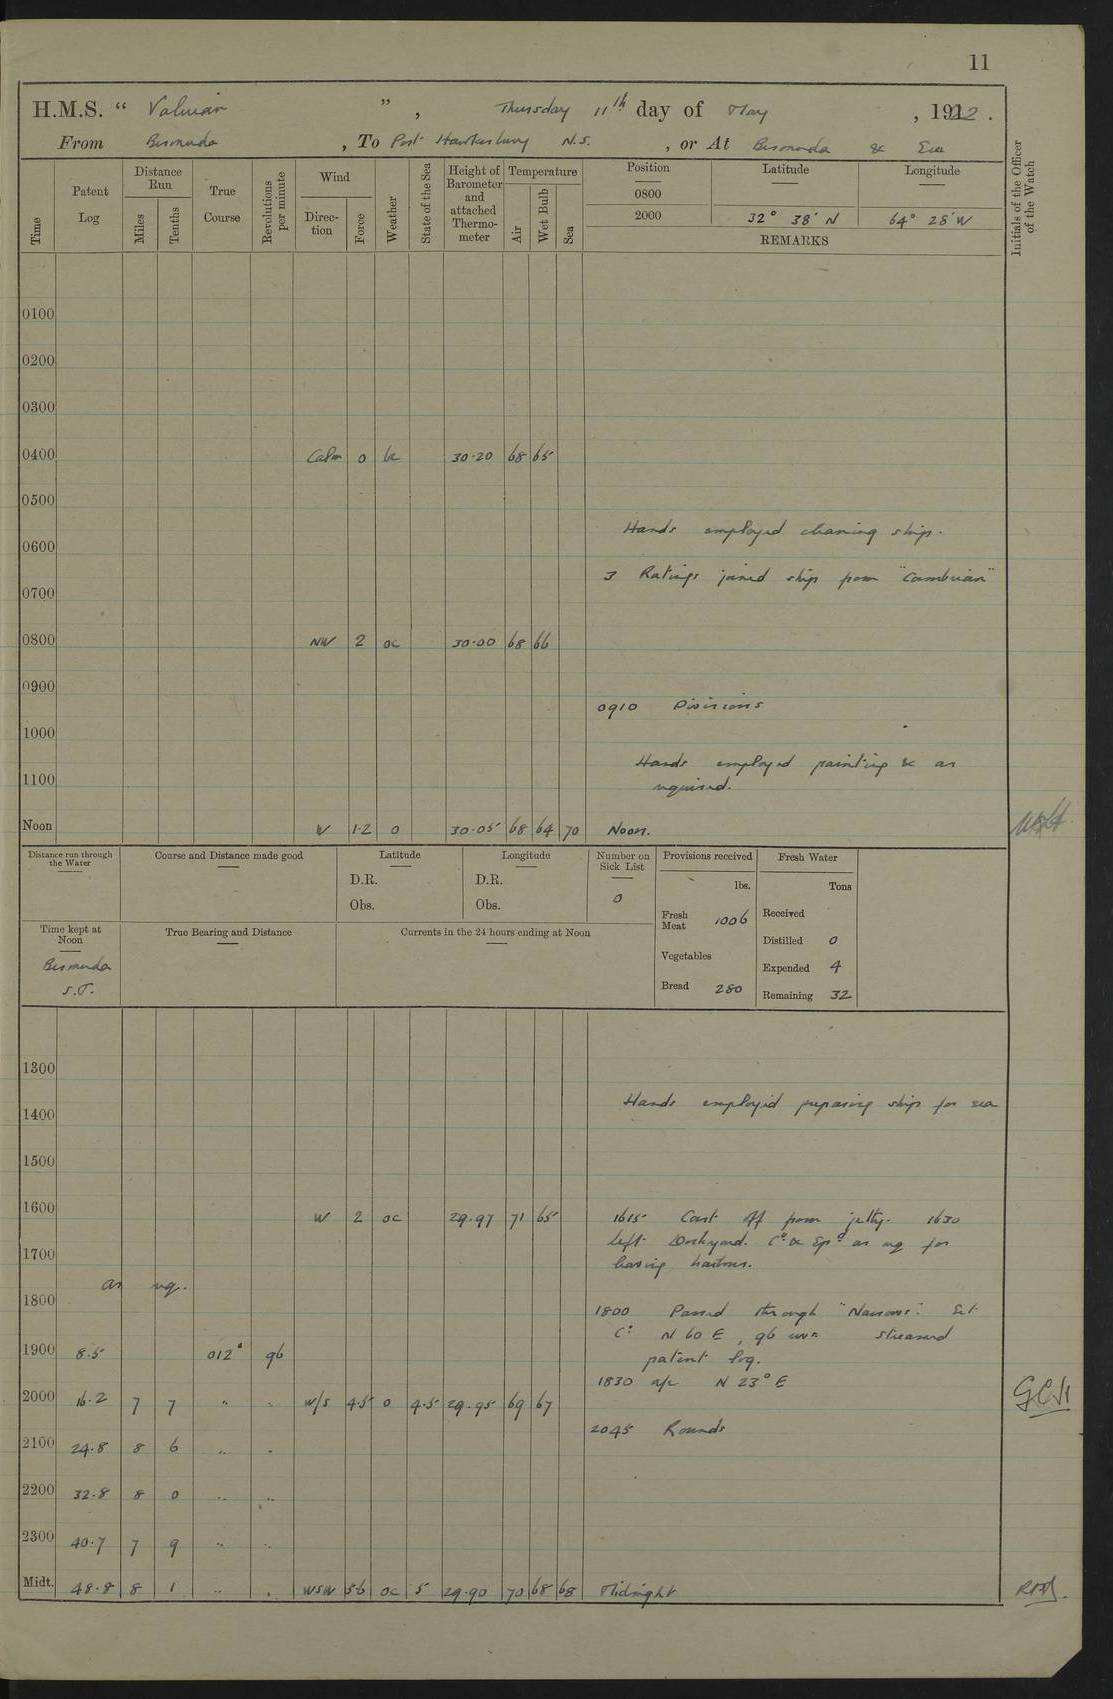 11
H.M.S. “ Valerian ”, Thursday 11th day of May , 1922 .
From Bermuda , To Port Hawkesbury N.S. , or At Bermuda & Sea
Time
Patent Log
Distance Run
Miles
Tenths
True Course
Revolutions per minute
Wind
Direc- tion
Force
Weather
State of the Sea
Height of Barometer and attached Thermo- meter
Temperature
Air
Wet Bulb
Sea
Position
0800
2000
Latitude
32° 38' N
Longitude
64° 28' W
REMARKS
Initials of the Officer of the Watch
0100
0200
0300
0400 Calm 0 bc 30·20 68 65
0500
Hands employed cleaning ship.
0600
3 Ratings joined ship from "Cambrian"
0700
0800 NW 2 oc 30·00 68 66
0900
0910 Divisions
1000
Hands employed painting & as
1100
required.
Noon W 1·2 0 30·05 68 64 70 Noon.
Distance run through the Water
Course and Distance made good
Latitude
D.R.
Obs.
Longitude
D.R.
Obs.
Number on Sick List
0
Provisions received
lbs.
Fresh Meat 1006
Vegetables
Bread 280
Fresh Water
Tons
Received
Distilled 0
Expended 4
Remaining 32
Time kept at Noon
Bermuda
S.T.
True Bearing and Distance
Currents in the 24 hours ending at Noon
1300
Hands employed preparing ship for sea
1400
1500
1600 W 2 oc 29·97 71 65 1615 Cast off from jetty. 1630
left Dockyard. Co & Spd as req for
1700 leaving harbour.
as req.
1800 1800 Passed through "Narrows". Set
Co N 60 E, 96 revs streamed
1900 8·5 012° 96 patent log.
1830 a/c N 23° E
2000 16·2 7 7 " " W/S 4·5 0 4·5 29·95 69 67
2045 Rounds
2100 24·8 8 6 " "
2200 32·8 8 0 " "
2300 40·7 7 9 " "
Midt. 48·8 8 1 " " WSW 5·6 oc 5 29·90 70 68 68 Midnight